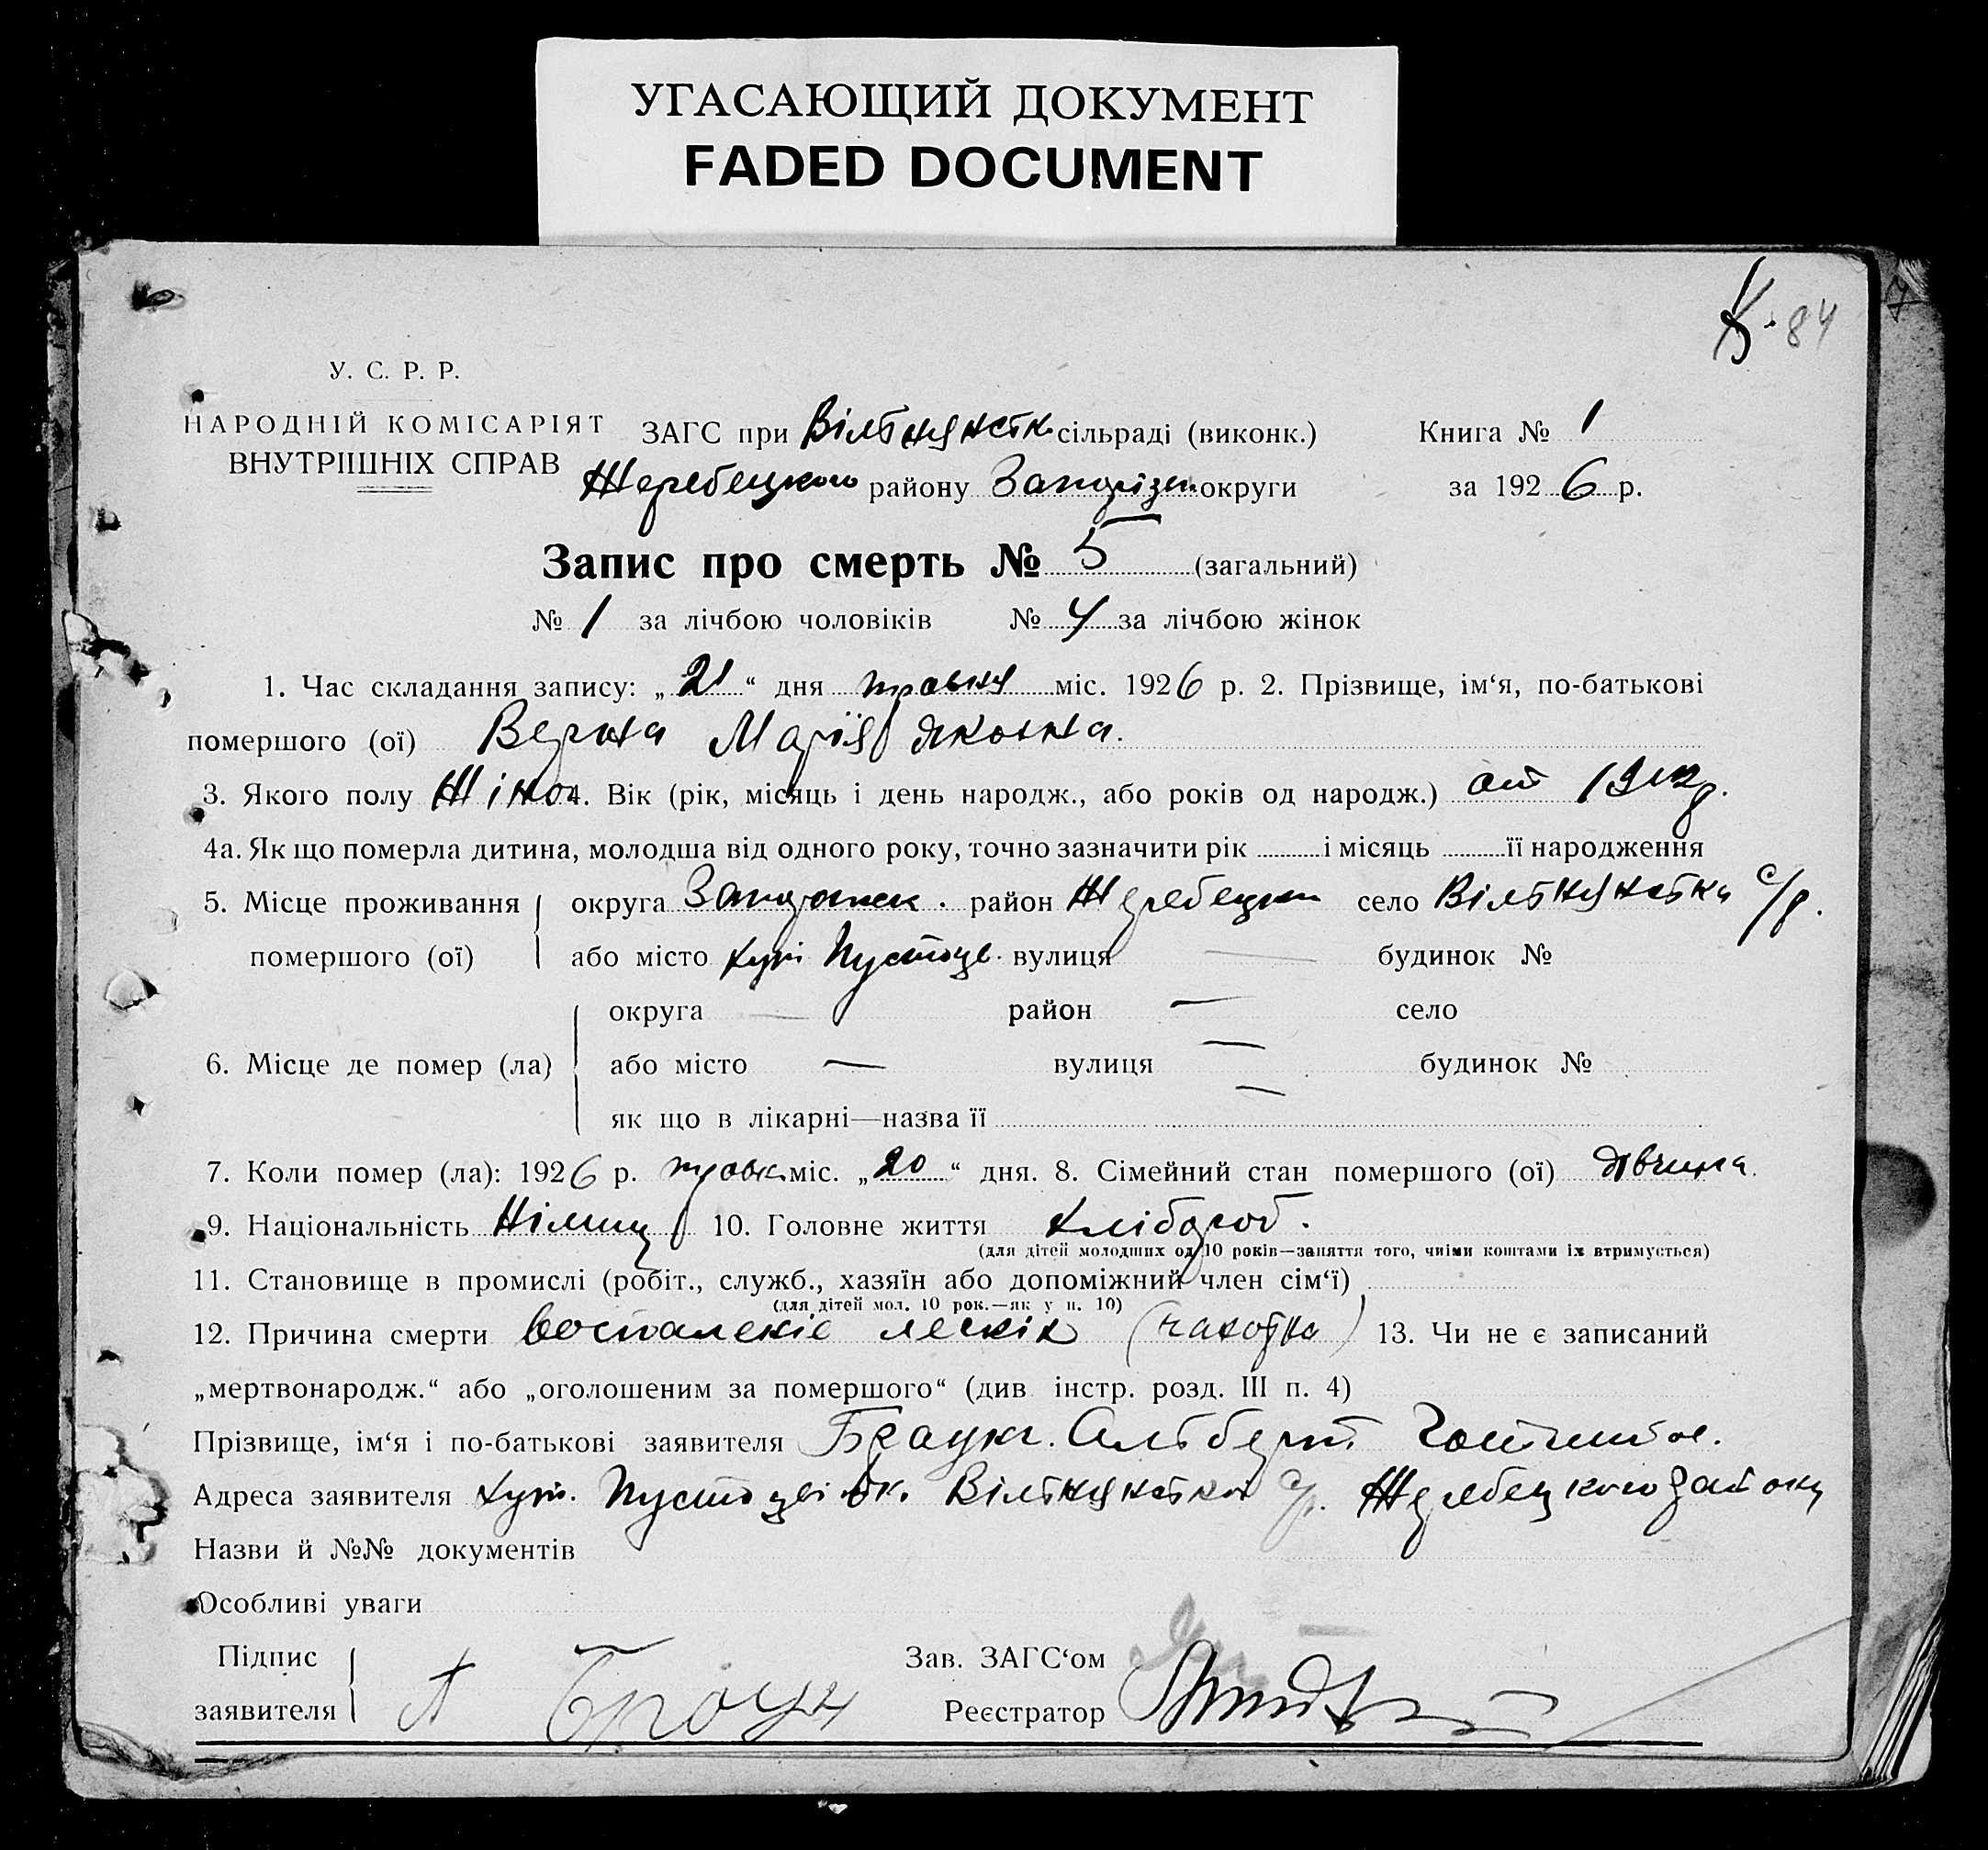 УГАСАЮЩИЙ ДОКУМЕНТ
FADED DOCUMENT
84
У. С. Р. Р.
НАРОДНІЙ КОМІСАРІЯТ
ВНУТРІШНІХ СПРАВ
ЗАГС при Вільнянськ сільраді (виконк.) Книга № 1
Жеребецкого району округи за 1926 р.
Запис про смерть № 5 (загальний)
№ 1 за лічбою чоловіків № 4 за лічбою жінок
1. Час складання запису: „21“ дня травня міс. 1926 р. 2. Прізвище, ім‘я, по-батькові
помершого (ої) Верна Марія Яковна.
3. Якого полу Жіно 4. Вік (рік, місяць і день народж., або років од народж.) от
4а. Як що померла дитина, молодша від одного року, точно зазначити рік і місяць її народження
5. Місце проживання округа район село с/р.
помершого (ої) або місто хут вулиця — будинок №
округа — район — село
6. Місце де помер (ла) або місто — вулиця — будинок №
як що в лікарні—назва її —
7. Коли помер (ла): 1926 р. травн міс. „20“ дня. 8. Сімейний стан помершого (ої) дівчина.
9. Національність 10. Головне життя хлібороб.
(для дітей молодших од 10 років—заняття того, чиїми коштами їх втримується)
11. Становище в промислі (робіт., служб., хазяїн або допоміжний член сім‘ї)
(для дітей мол. 10 рок.—як у п. 10)
12. Причина смерти воспаленіе легкіх (чахотка) 13. Чи не є записаний
„мертвонародж.“ або „оголошеним за помершого“ (див. інстр. розд. III п. 4)
Прізвище, ім‘я і по-батькові заявителя Браун. Альберт
Адреса заявителя хут. с/р. Жеребецкого району
Назви й №№ документів
Особливі уваги
Підпис Зав. ЗАГС‘ом
заявителя А Браун Реєстратор